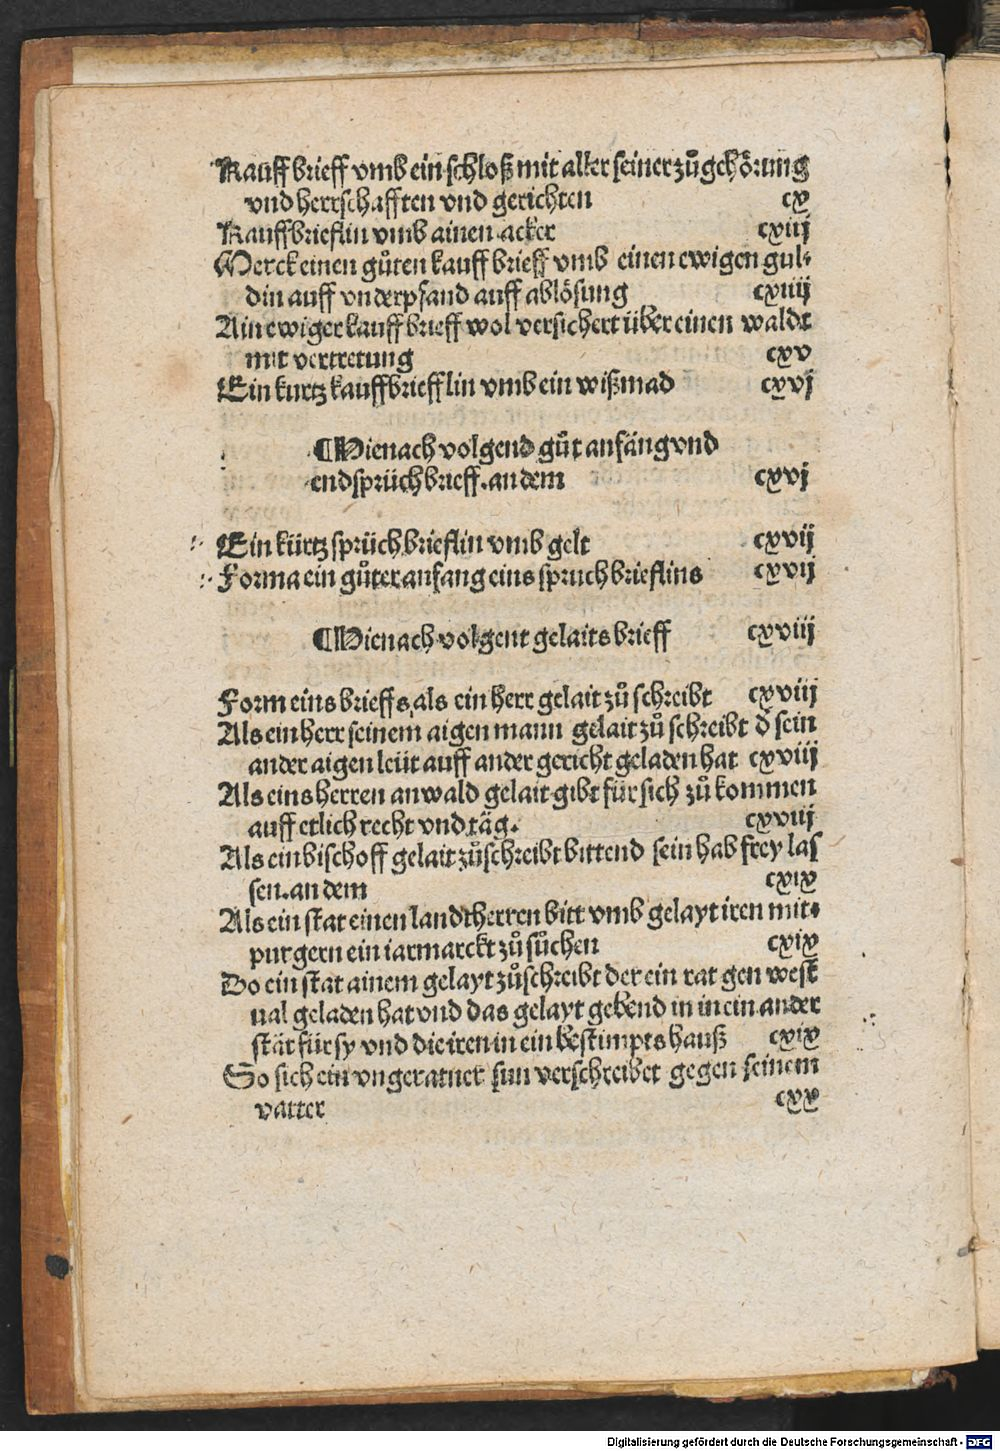 Kauff brieff vmb ein schloß mit aller seiner zůgehörung
vnd herrschafften vnd gerichten cx
Kauffbrieflin vmb ainen acker cxiij
Merck einen gůten kauff brieff vmb einen ewigen gul⸗
din auff vnderpfand auff ablösung cxiiij
Ain ewiger kauff brieff wol versichert über einen waldt
mit vertretung cxv
Ein kurtz kauffbriefflin vmb ein wißmad cxvj
¶Hienach volgend gůt anfäng vnd
endsprüchbrieff. an dem cxvj
Ein kürtz sprüch brieflin vmb gelt cxvij
Forma ein gůter anfang eins spruch brieflins cxvij
¶Hienach volgent gelaits brieff cxviij
Form eins brieffs als ein herr gelait zů schreibt cxviij
Als ein herr seinem aigen mann gelait zů schreibt d̕ sein
ander aigen leüt auff ander gericht geladen hat cxviij
Als eins herren anwald gelait gibt für sich zů kommen
auff etlich recht vnd täg. cxviij
Als ein bischoff gelait zůschreibt bittend sein hab frey las
sen. an dem cxix
Als ein stat einen landtherren bitt vmb gelayt iren mit⸗
purgern ein iarmarckt zů sůchen cxix
Do ein stat ainem gelayt zůschreibt der ein rat gen west
ual geladen hat vnd das gelayt gebend in in ein ander
stät für sy vnd die iren in ein bestimpts hauß cxix
So sich ein vngeratner sun verschreibet gegen seinem
vatter cxx
Digitalisierung gefördert durch die Deutsche Forschungsgemeinschaft - DFG